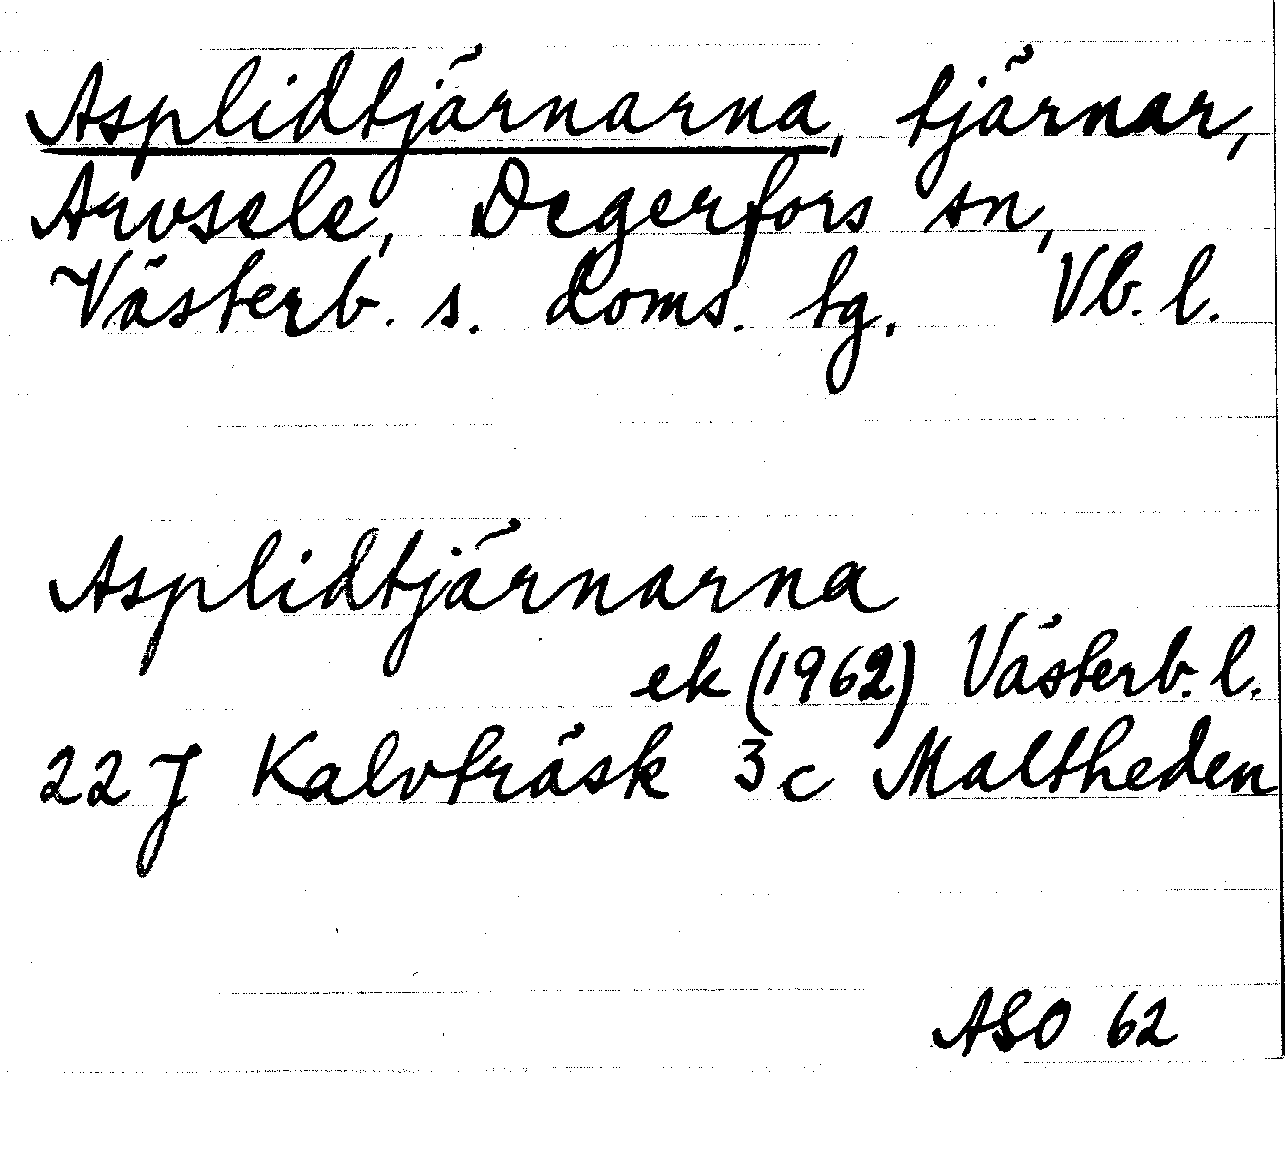 Asplidtjärnarna, tjärnar,
Arvsele, Degerfors sn,
Västerb. s. doms. tg. Vb. l.
Asplidtjärnarna
ek (1962) Västerb. l.
22 J Kalvträsk 3 c Maltheden
ASO 62